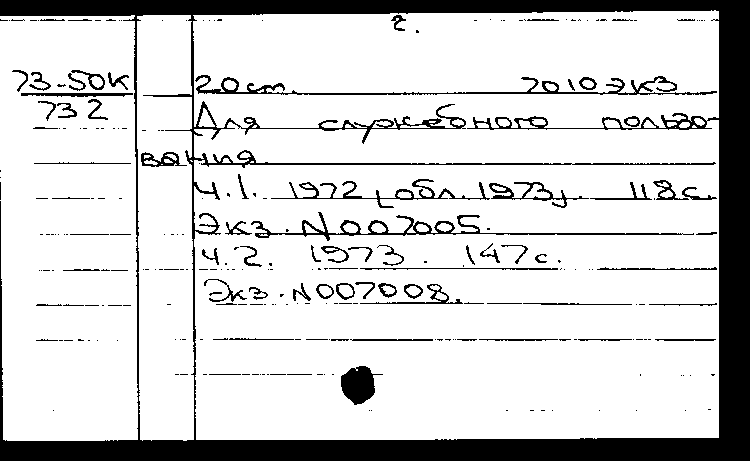 2.
73-50К 20 cm. 7010 экз
732
Для служебного пользо-
вания.
ч.1. 1972 [обл. 1973]. 118 с.
Экз. N007005.
ч.2. 1973. 147 с.
Экз. N007008.